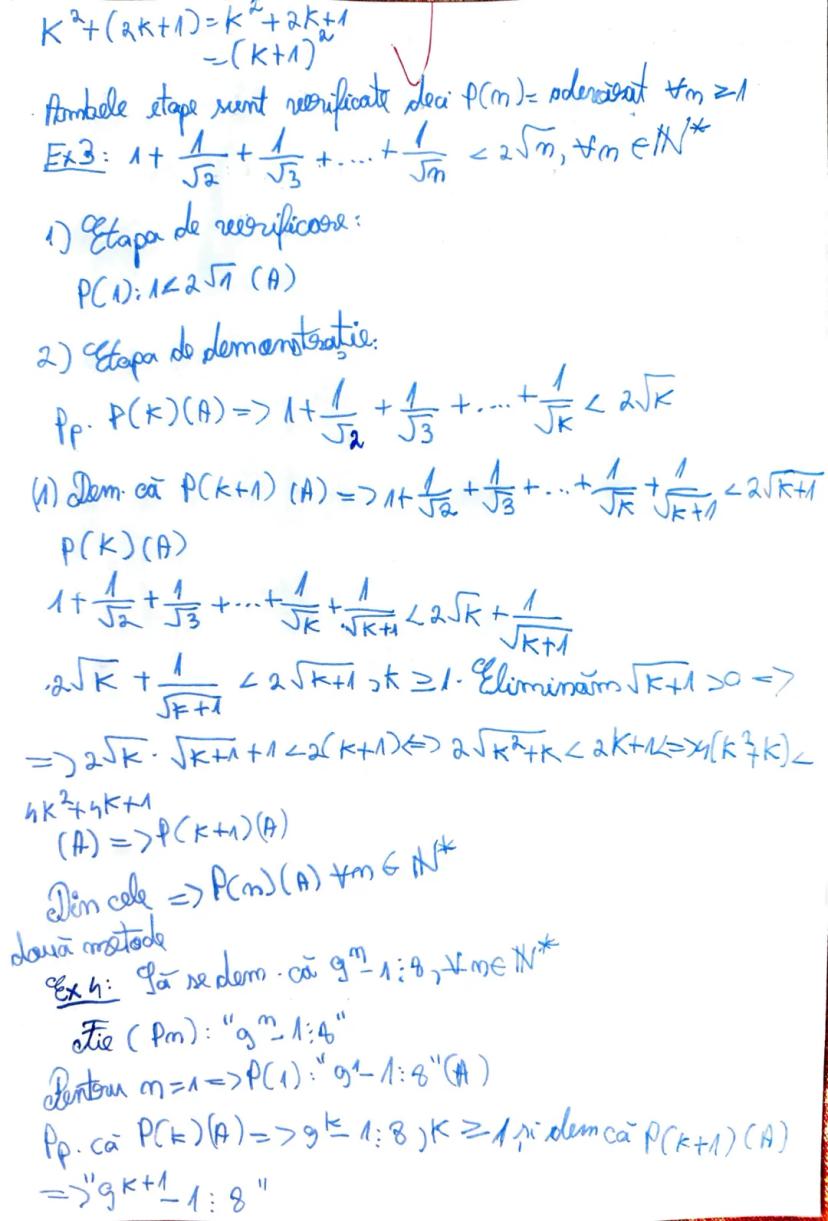 K²+(2k+1)=k²+2k+1
=(k+1)²
Ambele etape sunt verificate deci P(n)= adevărat ∀n ≥1
Ex3: 1+ 1/√2 + 1/√3 +....+ 1/√n < 2√n, ∀n ∈ ℕ*
1) Etapa de verificare:
P(1): 1<2√1 (A)
2) Etapa de demonstrație:
Pp. P(k)(A) => 1+ 1/√2 + 1/√3 +....+ 1/√k < 2√k
(1) Dem. că P(k+1) (A) => 1+ 1/√2 + 1/√3 +...+ 1/√k + 1/√k+1 < 2√k+1
P(k)(A)
1+ 1/√2 + 1/√3 +...+ 1/√k + 1/√k+1 < 2√k + 1/√k+1
2√k + 1/√k+1 < 2√k+1, k ≥1. Eliminăm √k+1 >0 =>
=> 2√k · √k+1 +1 < 2(k+1) <=> 2√k²+k < 2k+1 <=> 4(k²+k) <
4k²+4k+1
(A) => P(k+1)(A)
Din cele => P(n)(A) ∀n ∈ ℕ*
două metode
Ex4: Să se dem. că 9ⁿ-1⋮8, ∀n∈ ℕ*
Fie (Pn): "9ⁿ-1⋮8"
Pentru n=1 => P(1): "9¹-1⋮8" (A)
Pp. că P(k)(A) => 9ᵏ-1⋮8, k ≥1 și dem că P(k+1) (A)
=> "9ᵏ⁺¹-1⋮8"